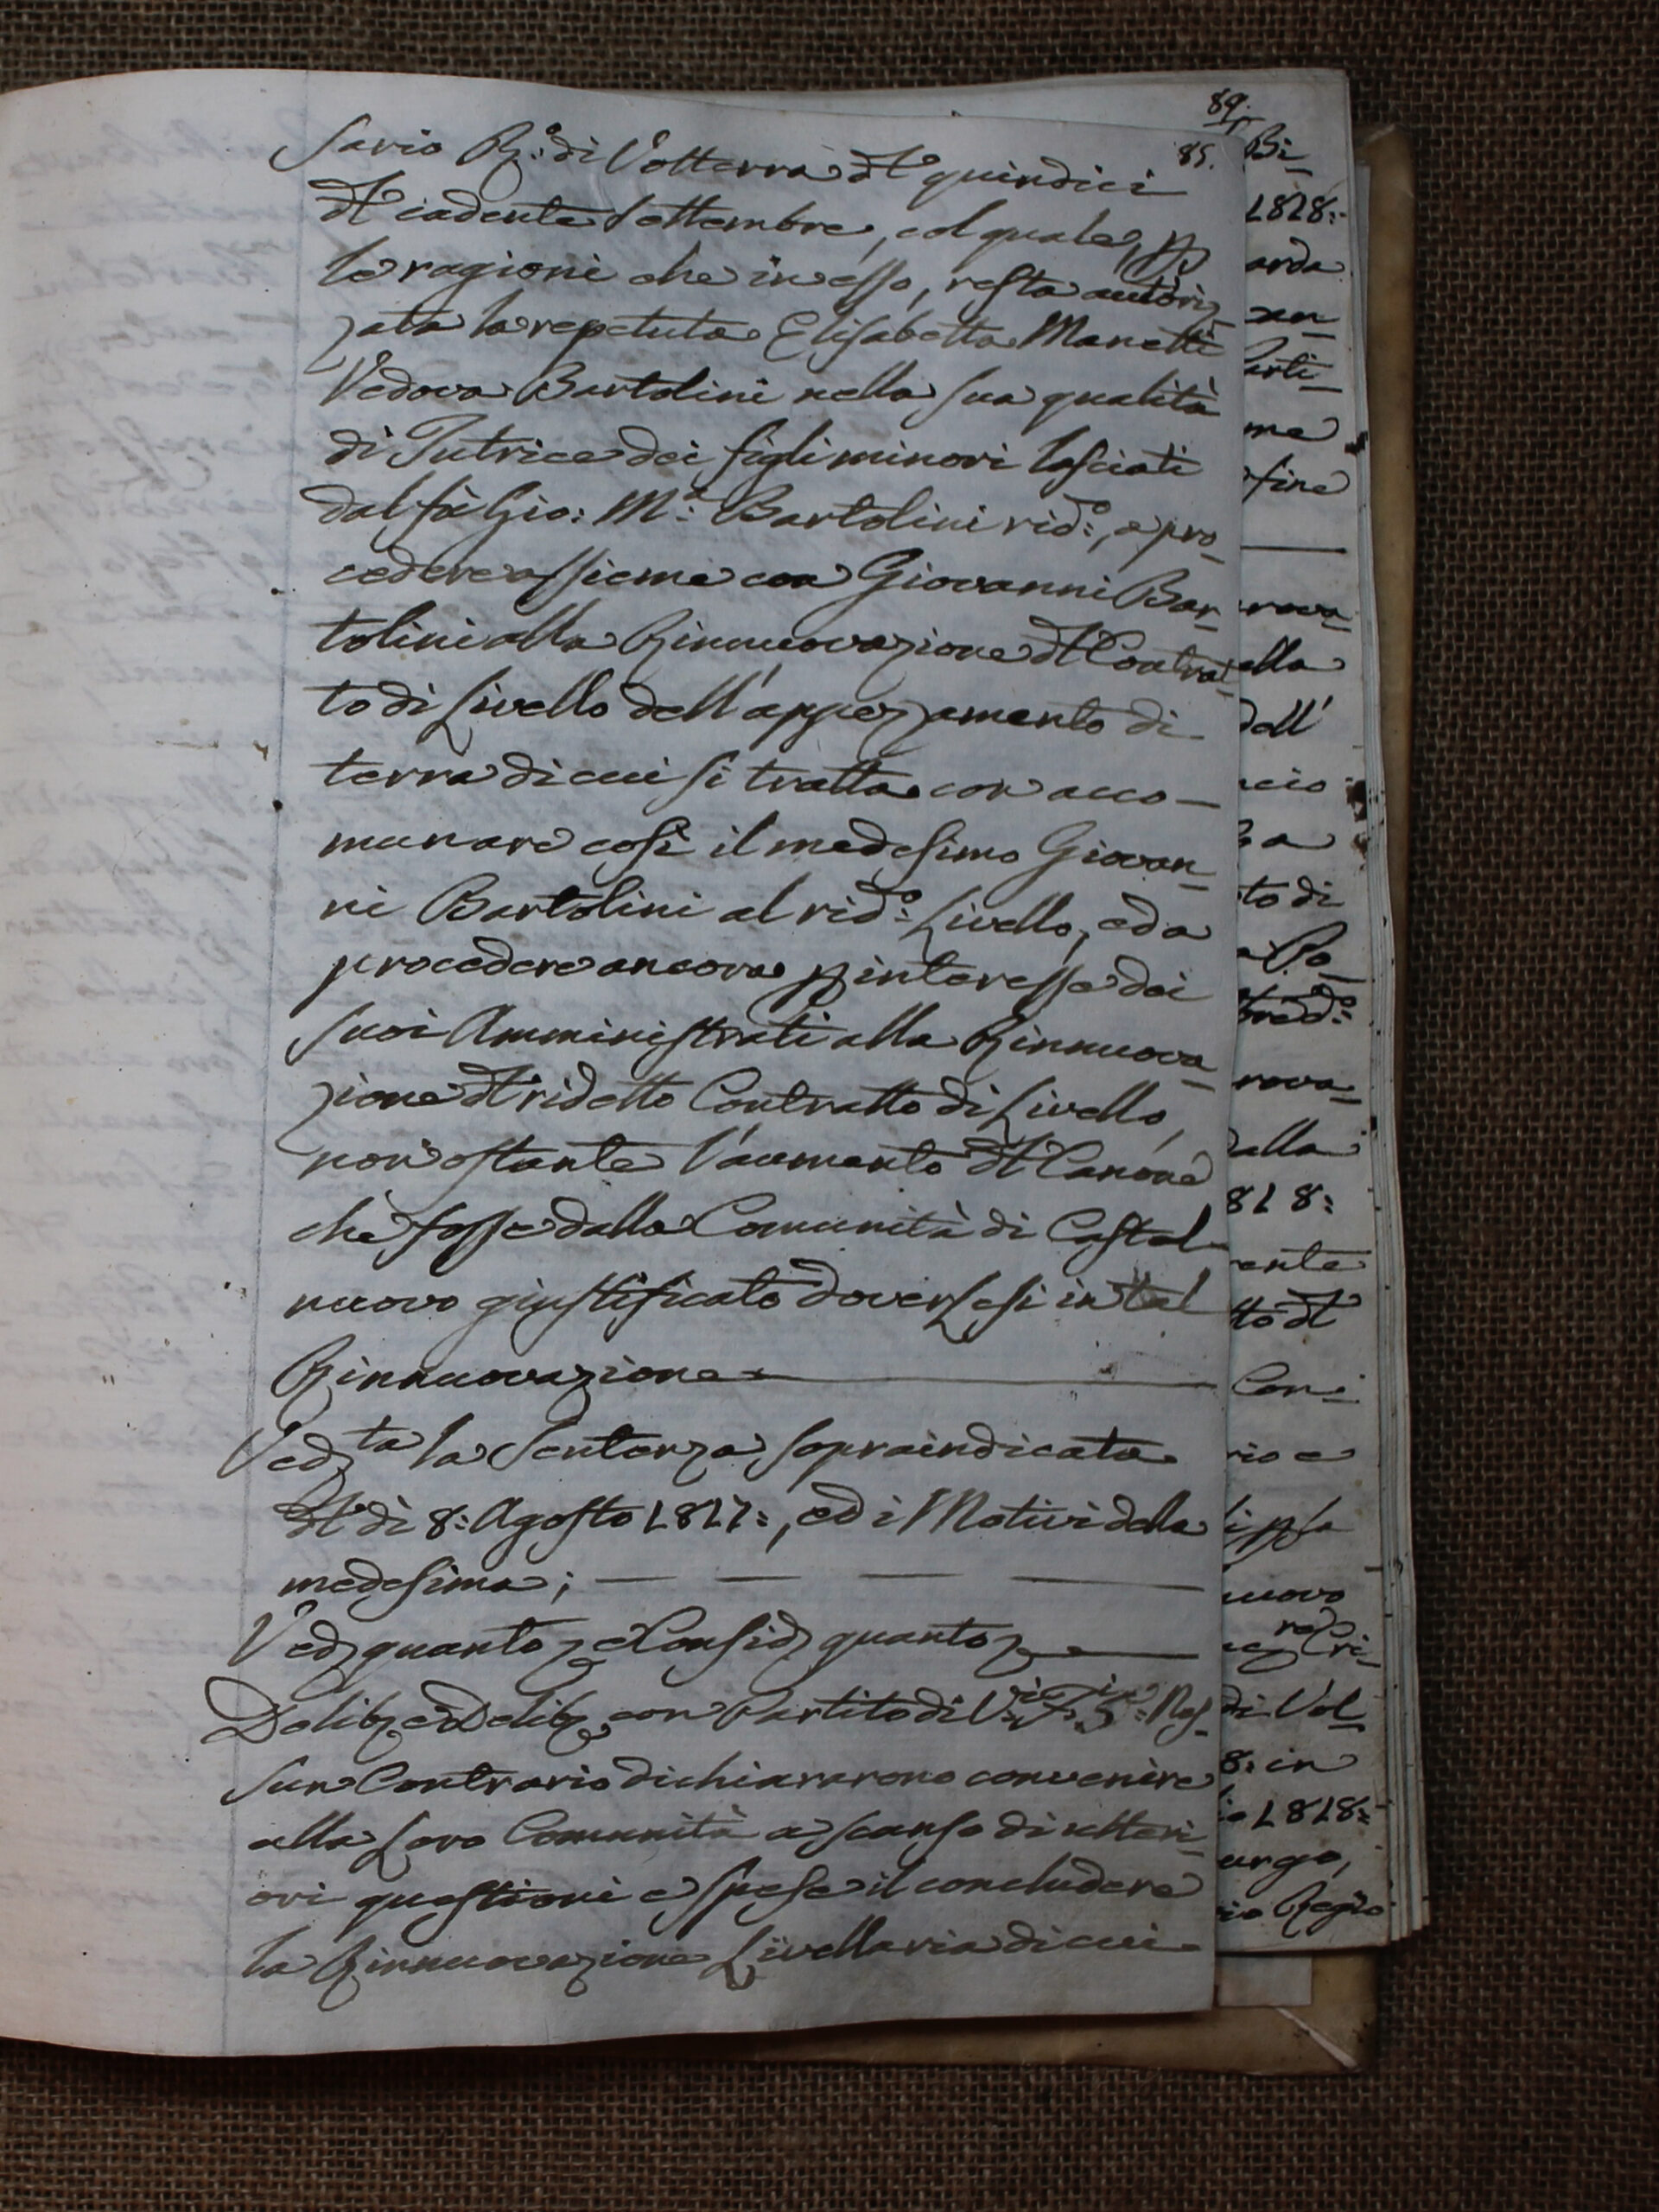 89.
85.
sario R.º di Volterra dt° quindici
dt° cadente Settembre, col quale, p
le ragioni che in esso, resta autoriz-
zata la repetuta Elisabetta Manetti
Vedova Bartolini nella sua qualità
di Tutrice dei figli minori lasciati
dal fù Gio: M.ª Bartolini rid.º, a pro-
cedere assieme con Giovanni Bar-
tolini alla Rinnuovazione dt Contrat-
to di Livello dell'appezzamento di
terra di cui si tratta con acco-
munare così il medesimo Giovan-
ni Bartolini al rid.º Livello, ed a
procedere ancora p interesse dei
suoi Amministrati alla Rinnuova-
zione dt ridetto Contratto di Livello,
non ostante l'aumento dt Canone
che fosse dalla Comunità di Castel-
nuovo giustificato doversesi in tal
Rinnuovazione
Ved ta la Sentenza sopraindicata
dt dì 8: Agosto 1817:, ed i Motivi della
medesima;
Ved quanto e Consid quanto
Delib ed Delib con Partito di V. F. 5: Nes-
sun Contrario dichiararono convenire
alla Loro Comunità a scanso di ulteri-
ori questioni e spese il concludere
la Rinnuovazione Livellaria di cui
Bi-
1818:
arda
arti-
me
fine
rova-
alla
dell'
cio
to di
rova-
dalla
818:
ente
to dt
Con-
rio e
nuovo
di Vol-
8: in
1818:
urgo,
io Regio